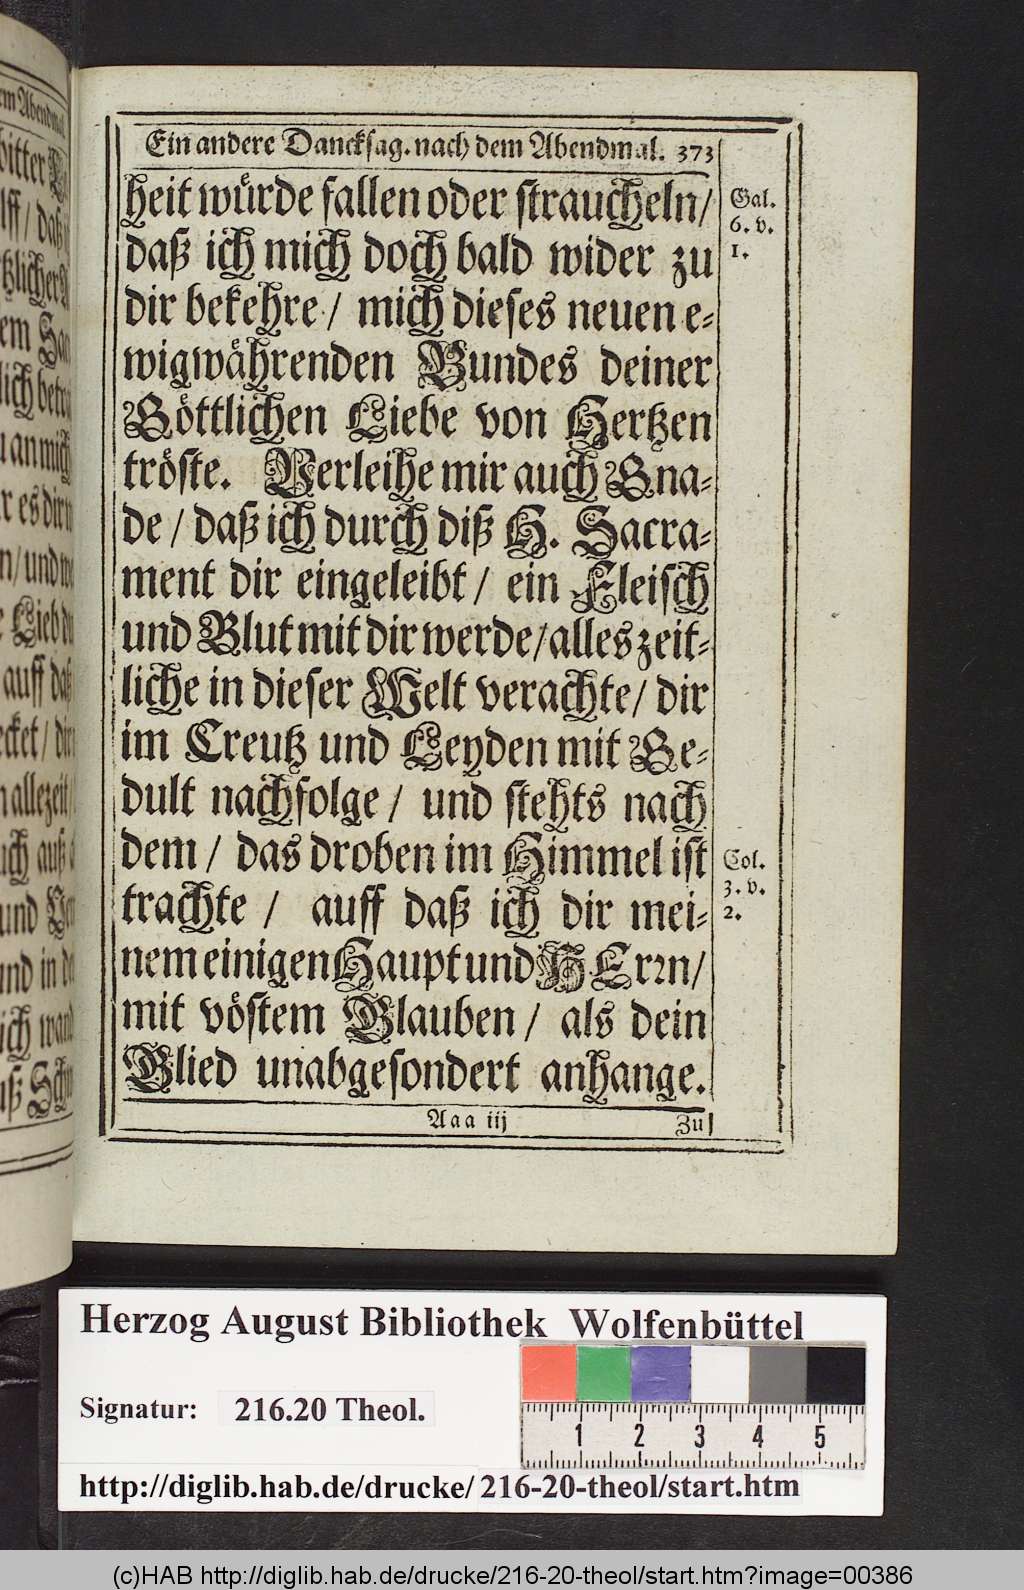 Ein andere Dancksag. nach dem Abendmal. 373
heit würde fallen oder straucheln/
daß ich mich doch bald wider zu
dir bekehre/ mich dieses neuen e-
wigwährenden Bundes deiner
Göttlichen Liebe von Hertzen
tröste. Verleihe mir auch Gna-
de/ daß ich durch diß H. Sacra-
ment dir eingeleibt/ ein Fleisch
und Blut mit dir werde/ alles zeit-
liche in dieser Welt verachte/ dir
im Creutz und Leyden mit Ge-
dult nachfolge/ und stehts nach
dem/ das droben im Himmel ist
trachte/ auff daß ich dir mei-
nem einigen Haupt und HErrn/
mit vöstem Glauben/ als dein
Glied unabgesondert anhange.
Aaa iij
Zu
Gal.
6. v.
1.
Col.
3. v.
2.
Herzog August Bibliothek Wolfenbüttel
Signatur: 216.20 Theol.
1 2 3 4 5
http://diglib.hab.de/drucke/216-20-theol/start.htm
(c)HAB http://diglib.hab.de/drucke/216-20-theol/start.htm?image=00386